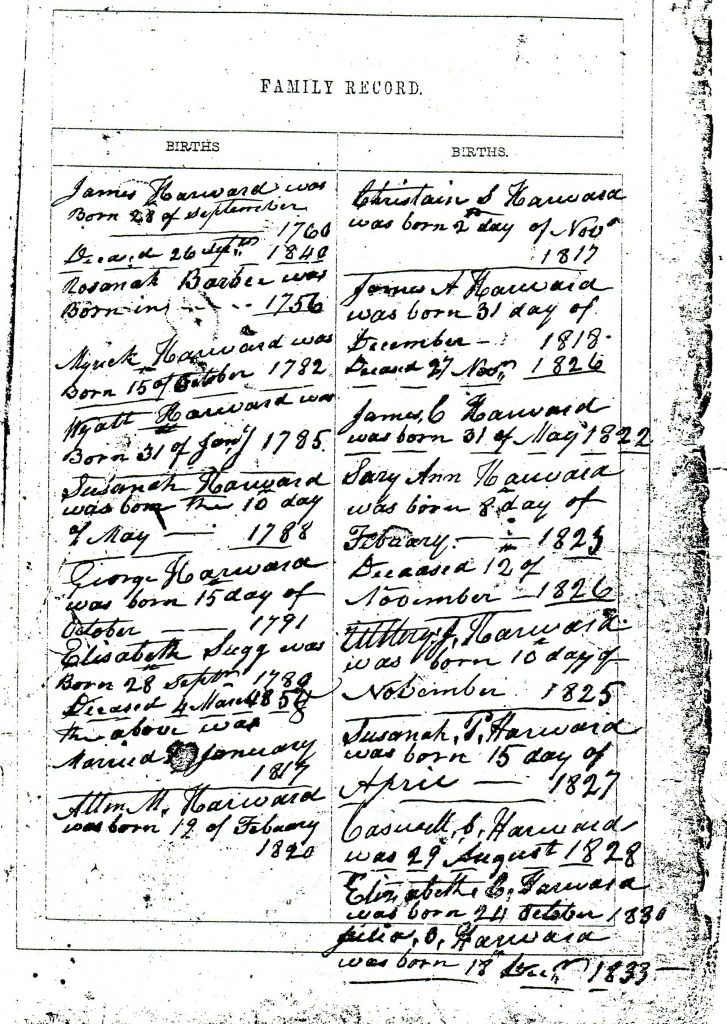 FAMILY RECORD.
BIRTHS
James Harward was
Born 28 of September
1760
Deceased 26 Sept 1840
Rosanah Barbee was
Born in - - - 1756
Myrick Harward was
Born 15 of October 1782
Wyatt Harward was
Born 31 of Jany 1785
Susanah Harward
was born the 10 day
of May — 1788
George Harward
was born 15 day of
October — 1791
Elisabeth Sugg was
Born 28 Septm 1789
Deceased 4 March
the above was
Married January
1817
Allen M. Harward
was born 19 of Febuary
1820
BIRTHS.
Christain S Harward
was born 2 day of Nov
1817
James A Harward
was born 31 day of
December - 1818
Deceasd 27 Nov 1826
James C Harward
was born 31 of May 1822
Sary Ann Harward
was born 8 day of
Febuary — 1823
Deceased 12 of
November — 1826
Harward
was born 10 day of
November 1825
Susanah. P. Harward
was born 15 day of
April — 1827
Caswell, C, Harward
was 29 August 1828
Elizabeth C, Harward
was born 24 October 1830
Julia, O, Harward
was born 18 Decm 1833